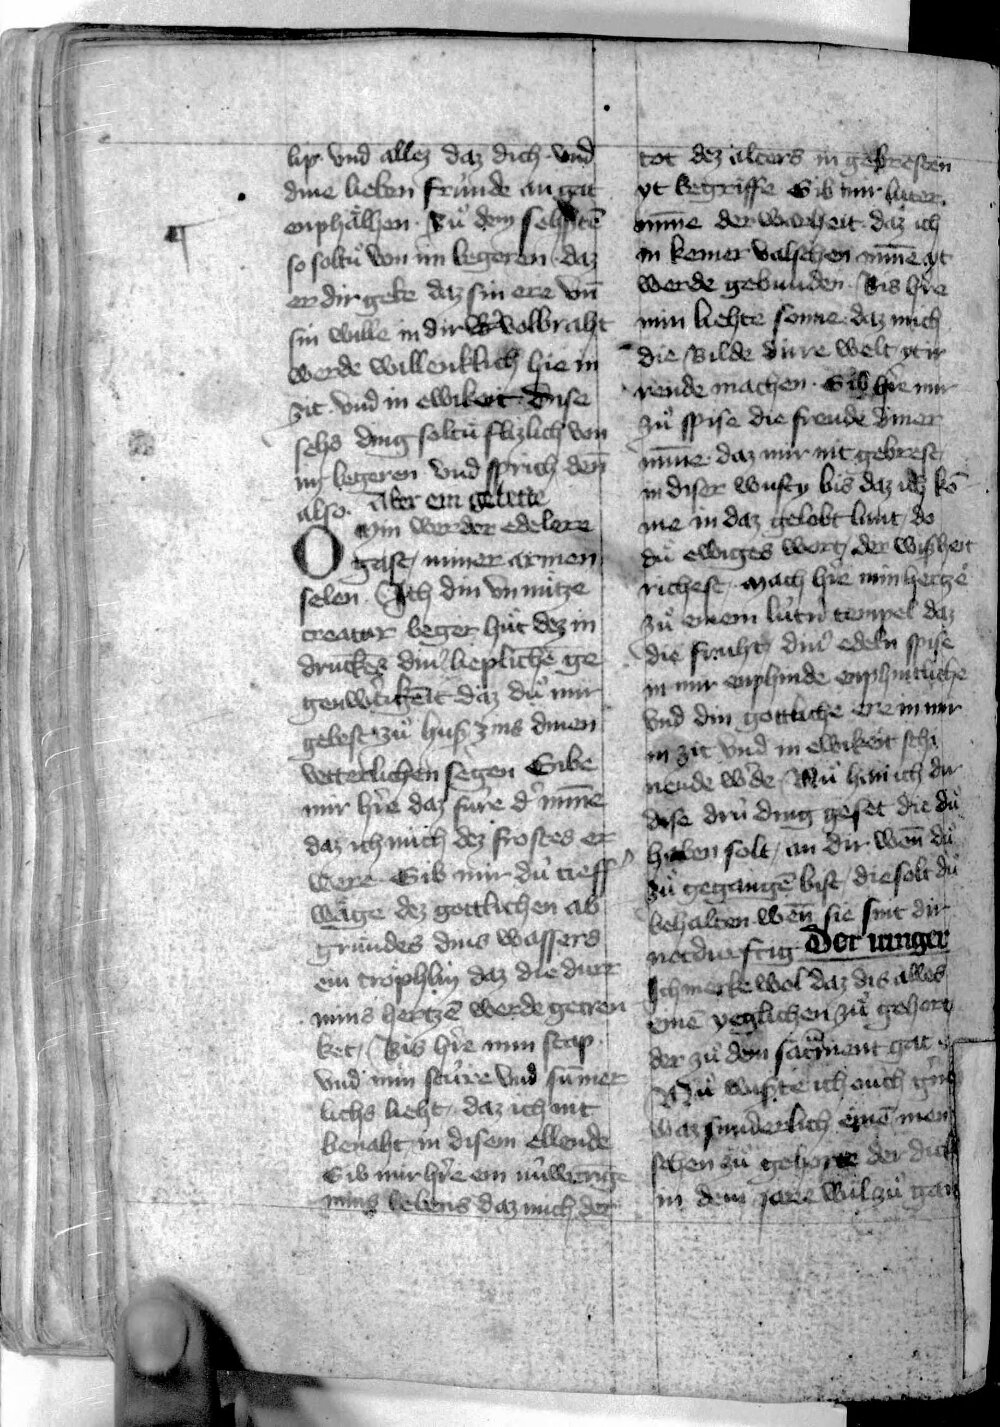 lip. vnd allez daz dich. vnd
dine lieben frúnde an gat
enphälhen. Zuͦ dem sehsten̄
so soltu von im begeren. daz
er dir gebe daz sin ere vn̄
sin wille in dir volbraht
werde willenklich hie in
zit. vnd in ewikeit. Dise
sehs ding soltu flizlich von
im begeren vnd sprich den̄
also. Aber ein gebette
O Min werder edelere
gast, miner armen
selen. Ich din vnnútze
creatur beger hút dez in
druckez dinr̄ lieplichē ge
genwúrkeit daz du mir
gebest zuͦ huß zins dinen
vetterlichen segen Gibe
mir hr̄e daz fúre dr̄ mīne
daz ich mich dez frostes er
were. Gib mir du tieff
wäge dez gottlichen ab
grúndes dins wassers
ein tröphlin daz die dúrr
mins hertzē werde getren
ket, Bis hr̄e min stap.
vnd min stúre vnd sūmer
lichs lieht. daz ich nit
benaht in disem ellende
Gib mir hr̄e ein
mins lebens daz mich der
tot dez alters in gebresten
yt begriffe Gib mir luter
mīne der warheit. daz ich
in keiner valschen mīne yt
werde gebunden. Bis hr̄e
min liehte sonne. daz mich
die wilde dúre welt yt ir
rende machen. Gib hr̄e mir
zuͦ spise die freude diner
mīne. daz mir nit gebrest
in diser wusty bis daz ich kō
me in daz gelobt lant, do
du ewiges wort, der wißheit
richest. Mach hr̄e min hertze
zuͦ einem lutrn tempel daz
die fruht dinr̄ edeln spise
in mir enphinde enphintliche
vnd din gottliche ere in mir
in zit vnd in ewikeit schi
nende wr̄de. Nu han ich dir
dise drú ding geset die du
haben solt, an dir wen̄ du
zuͦ gegangē bist, die solt du
behalten. wen̄ sie sint dir
notdurftig Der iunger
Ich merke wol daz dis alles
einē yeglichen zuͦ gehort
der zuͦ dem sacrament gat
Nu wuste ich ouch
waz sunderlich einē men
schen zuͦ gehorte der dick
in dem jare wil zuͦ gan